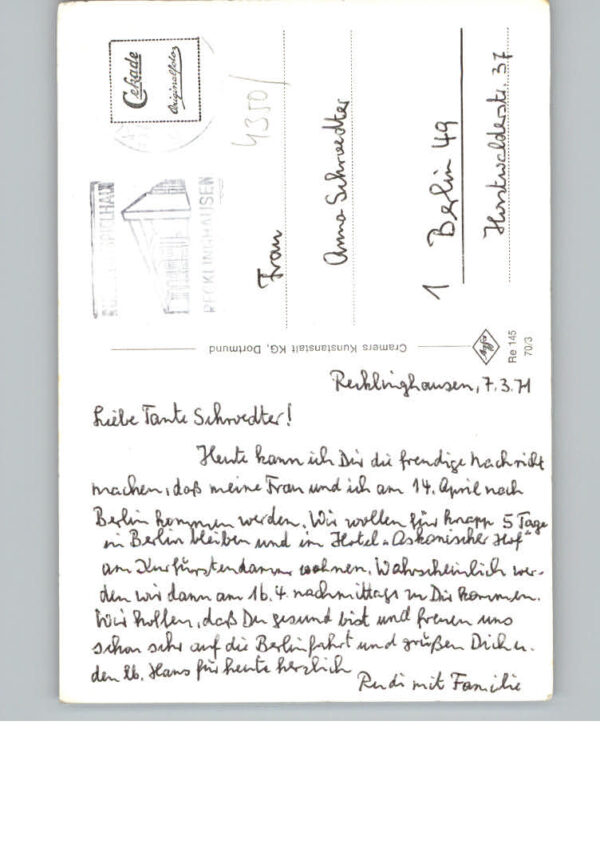 Cekade
Originalfoto
4350/
RECKLINGHAUSEN
Frau
Anna Schroedter
1 Berlin 49
Horstwalderstr. 37
Cramers Kunstanstalt KG, Dortmund
Agfa
Re 145
70/3
Recklinghausen, 7.3.71
Liebe Tante Schroedter!
Heute kann ich Dir die freudige Nachricht
machen, daß meine Frau und ich am 14. April nach
Berlin kommen werden. Wir wollen für knapp 5 Tage
in Berlin bleiben und im Hotel „Askanischer Hof“
am Kurfürstendamm wohnen. Wahrscheinlich wer-
den wir dann am 16.4. nachmittags zu Dir kommen.
Wir hoffen, daß Du gesund bist und freuen uns
schon sehr auf die Berlinfahrt und grüßen Dich u.
den lb. Hans für heute herzlich
Rudi mit Familie